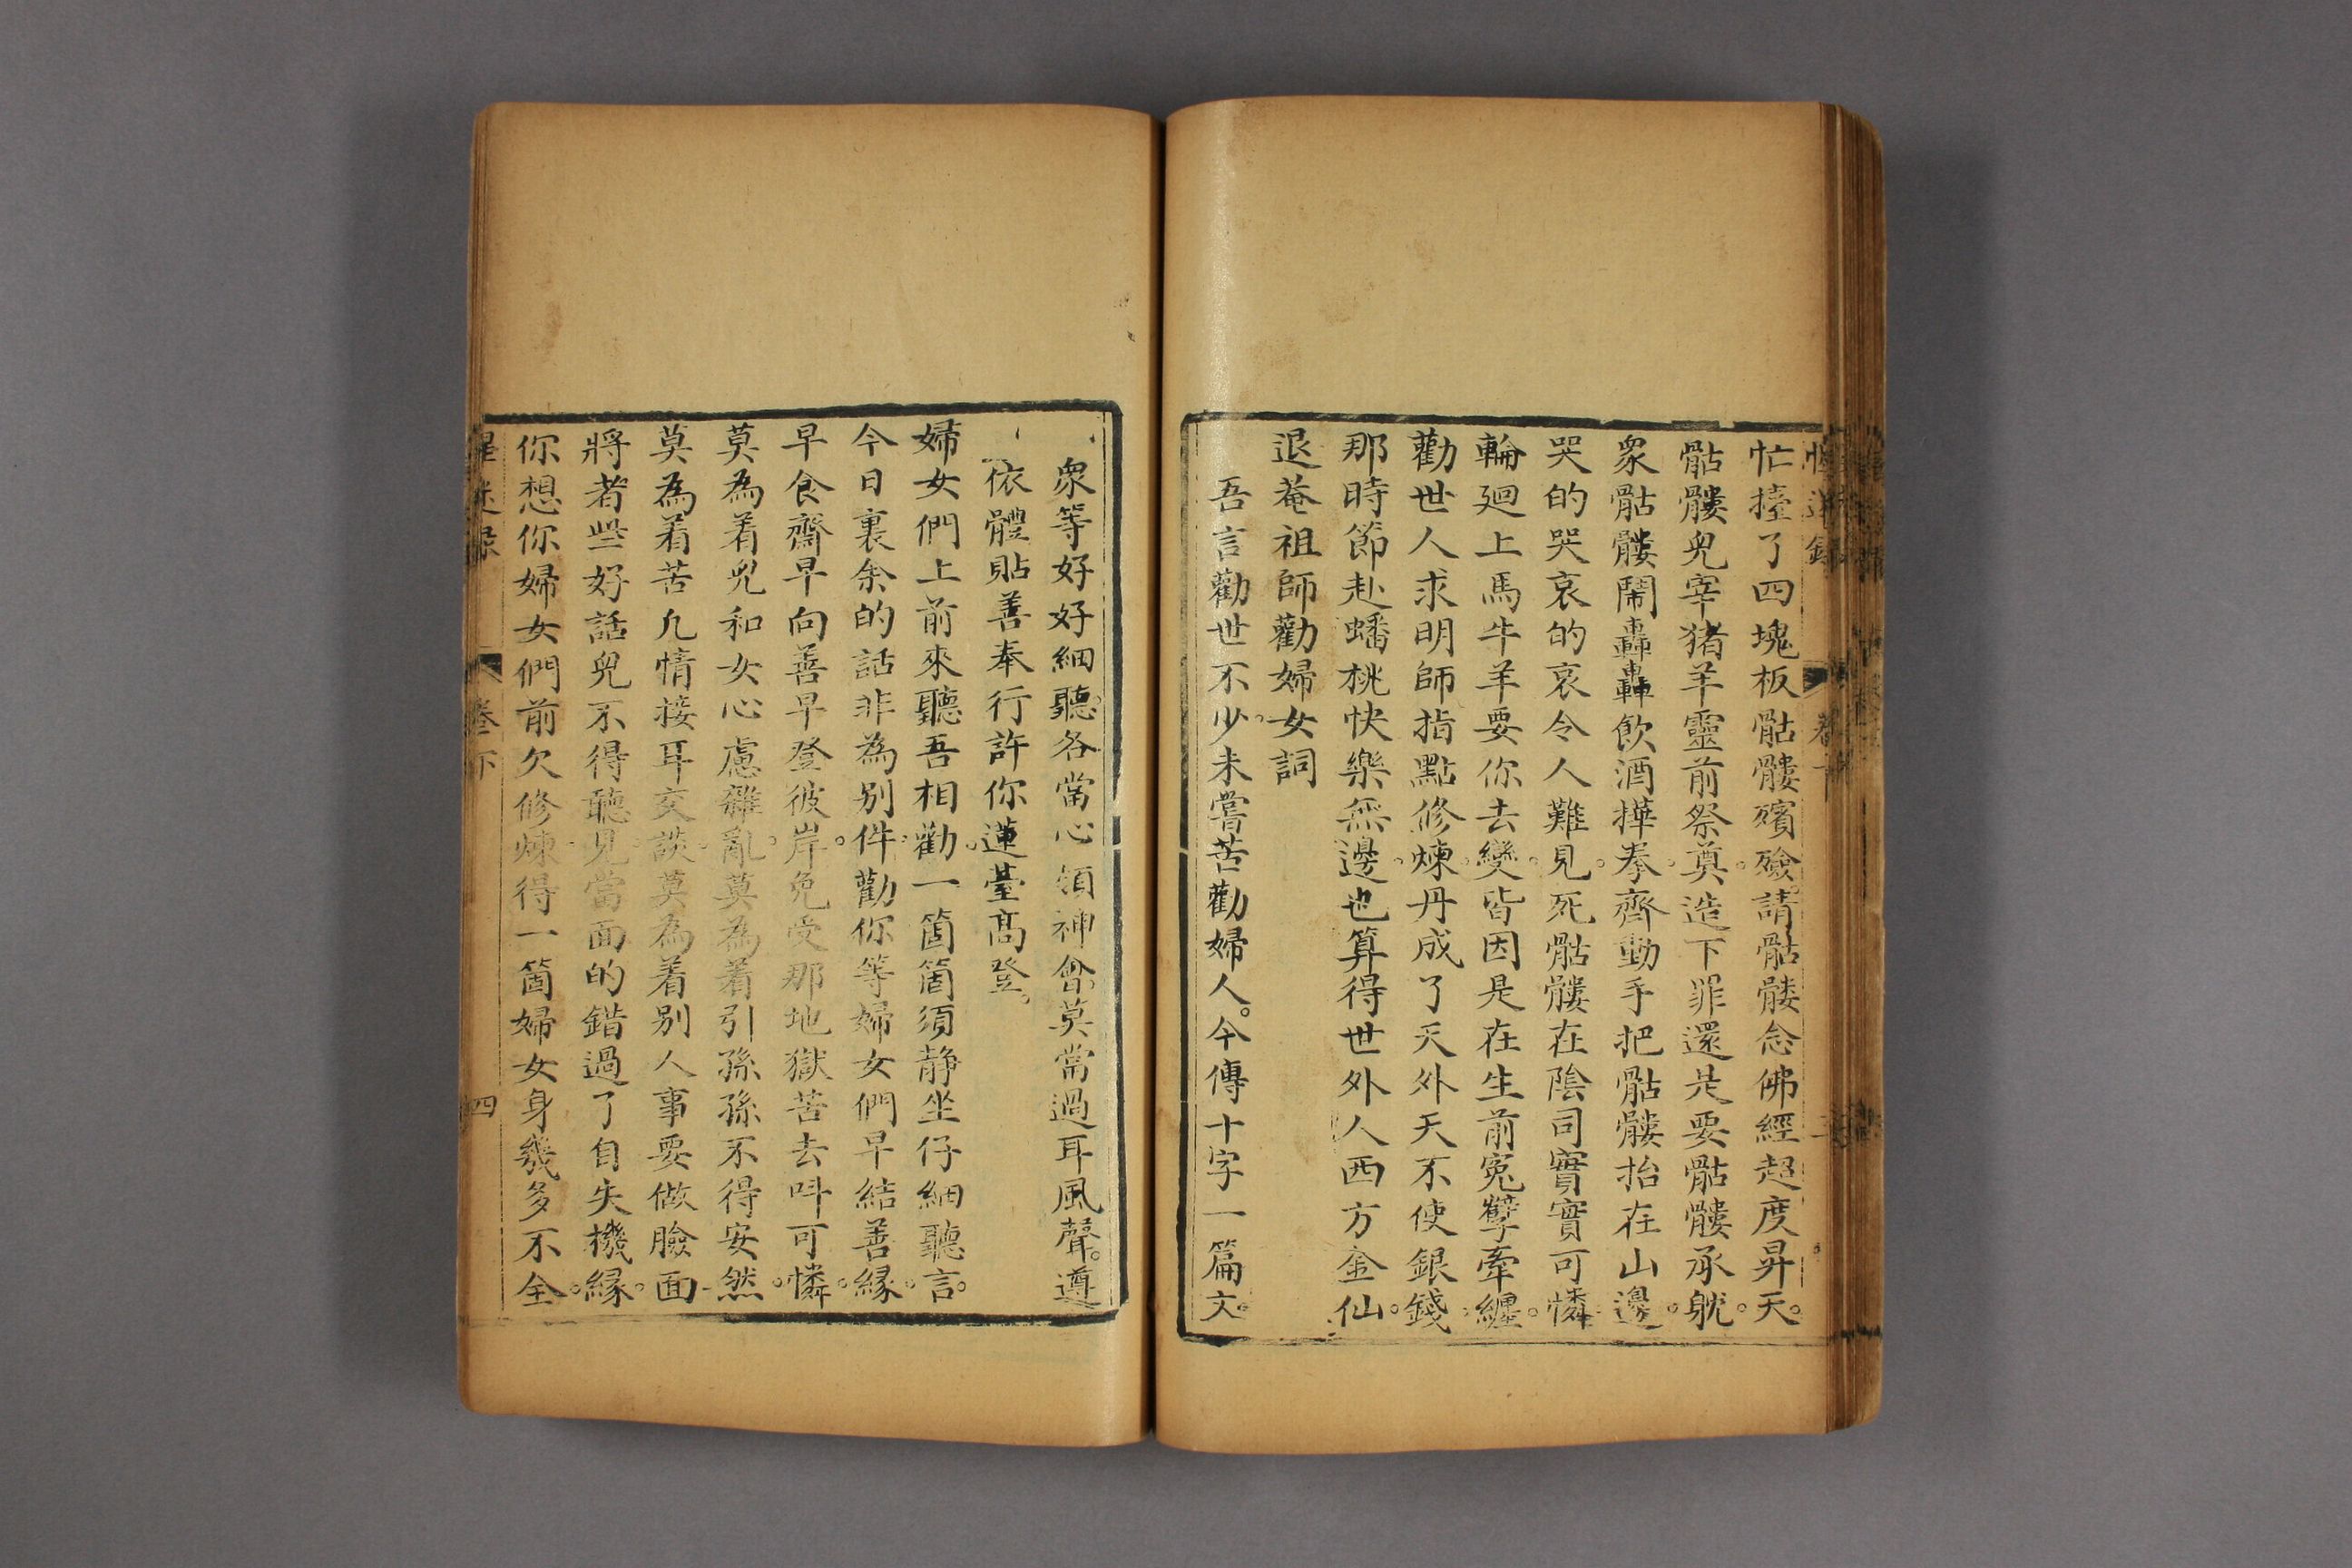 忙擡了四塊板骷髏殯殮。請骷髅念佛經超度昇天。
骷髏兒宰猪羊靈前祭奠。造下罪還是要骷髏承躭。
衆骷髏鬧轟轟飲酒攆拳。齊動手把骷髏抬在山邊。
哭的哭哀的哀令人難見。死骷髏在陰司實實可憐。
輪廻上馬牛羊要你去變。皆因是在生前寃孽牽纒。
勸世人求明師指點修煉。丹成了天外天不使銀錢。
那時節赴蟠桃快樂無邊。也算得世外人西方金仙。
退菴祖師勸婦女詞
吾言勸世不少。未嘗苦勸婦人。今傳十字一篇文。
衆等好好細聽。各當心領神會。莫當過耳風聲。遵
依體貼善奉行許你蓮臺高登。
婦女們上前來聽吾相勸。一箇箇須静坐仔細聽言。
今日裏余的話非為别件。勸你等婦女們早結善緣。
早食齋早向善早登彼岸。免受那地獄苦去呌可憐。
莫為着兒和女心慮雜亂。莫為着引孫孫不得安然。
莫為着苦凡情接耳交談。莫為着别人事要做臉面。
將者些好話兒不得聽見。當面的錯過了自失機緣。
你想你婦女們前欠修煉。得一箇婦女身幾多不全。
卷下
四